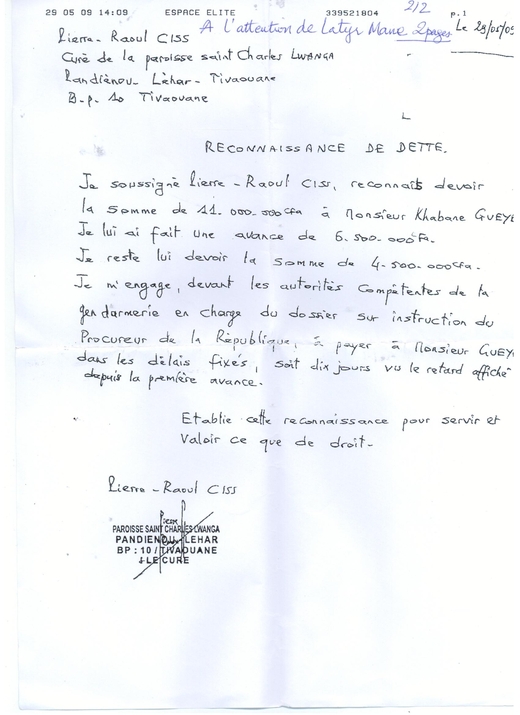 29 05 09 14:09 ESPACE ELITE 339521804 2/2 p.1
A l'attention de Latyr Mane 2 pages Le 29/05/09
Pierre - Raoul CISS
Curé de la paroisse saint Charles LWANGA
Pandiénou - Léhar - Tivaouane
B.p. 10 Tivaouane
RECONNAISSANCE DE DETTE.
Je soussigné Pierre - Raoul Ciss, reconnais devoir
la somme de 11.000.000 cfa à Monsieur Khabane GUEYE
Je lui ai fait une avance de 6.500.000 cfa.
Je reste lui devoir la somme de 4.500.000 cfa.
Je m'engage, devant les autorités compétentes de la
gendarmerie en charge du dossier sur instruction du
Procureur de la République, à payer à Monsieur GUEYE
dans les délais fixés, soit dix jours vu le retard affiché
depuis la première avance.
Etablie cette reconnaissance pour servir et
valoir ce que de droit.
Pierre - Raoul CISS
PAROISSE SAINT CHARLES LWANGA
PANDIENOU LEHAR
BP : 10 / TIVAOUANE
LE CURE